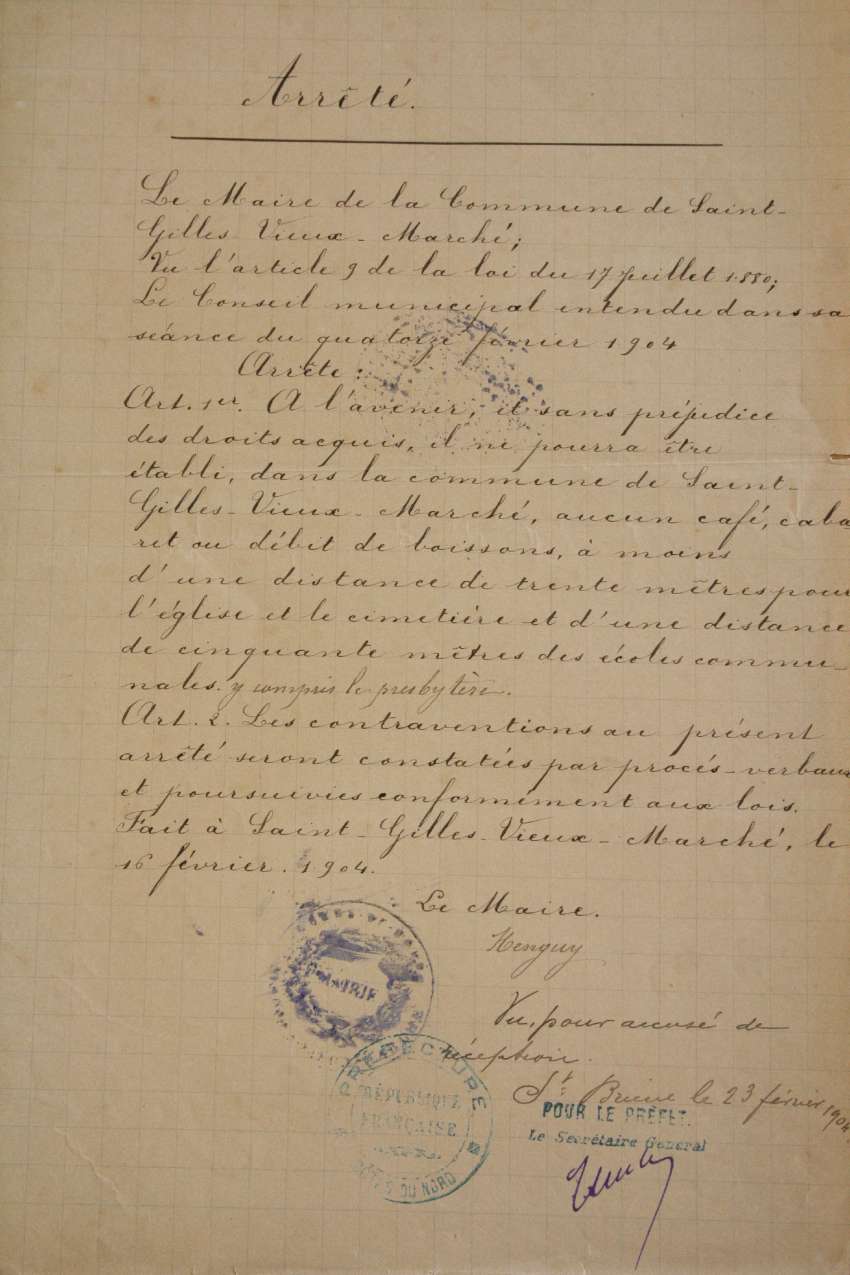 Arrêté.
Le Maire de la Commune de Saint-
Gilles-Vieux-Marché;
Vu l'article 9 de la loi du 17 juillet 1880;
Le Conseil municipal entendu dans sa
séance du quatorze février 1904
Arrête:
Art. 1er. A l'avenir, et sans préjudice
des droits acquis, il ne pourra être
établi, dans la commune de Saint-
Gilles-Vieux-Marché, aucun café, caba
ret ou débit de boissons, à moins
d'une distance de trente mètres pour
l'église et le cimetière et d'une distance
de cinquante mètres des écoles commu-
nales. y compris le presbytère.
Art. 2. Les contraventions au présent
arrêté seront constatées par procés-verbaux
et poursuivies conformément aux lois.
Fait à Saint-Gilles-Vieux-Marché, le
16 février. 1904.
Le Maire.
Henguy
MAIRIE
Vu, pour accusé de
réception.
St Brieuc le 23 février 1904.
PRÉFECTURE
RÉPUBLIQUE
FRANÇAISE
DU NORD
POUR LE PRÉFET.
Le Secrétaire Général